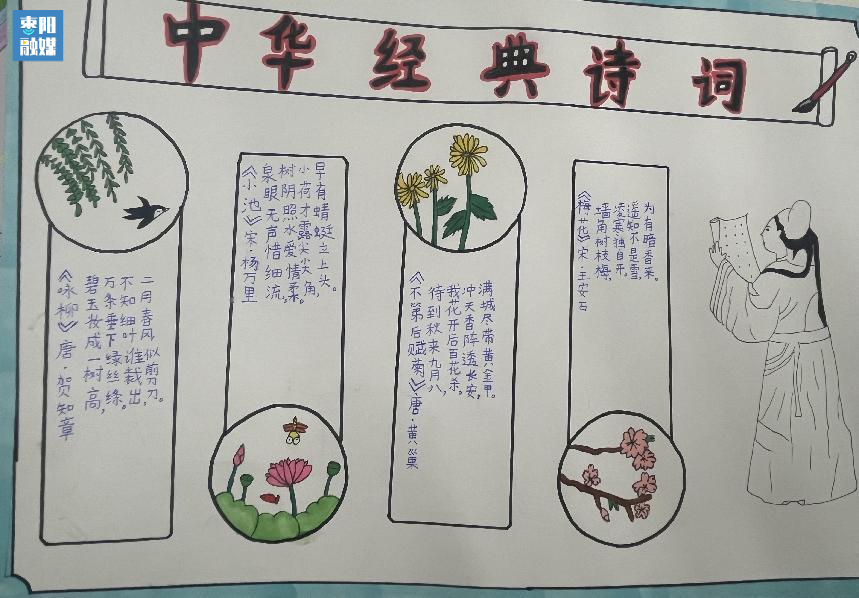 枣阳
融媒
中华经典诗词
《咏柳》唐·贺知章
碧玉妆成一树高,
万条垂下绿丝绦。
不知细叶谁裁出,
二月春风似剪刀。
《小池》宋·杨万里
泉眼无声惜细流,
树阴照水爱情柔。
小荷才露尖尖角,
早有蜻蜓立上头。
《不第后赋菊》唐·黄巢
待到秋来九月八,
我花开后百花杀。
冲天香阵透长安,
满城尽带黄金甲。
《梅花》宋·王安石
墙角树枝梅,
凌寒独自开。
遥知不是雪,
为有暗香来。